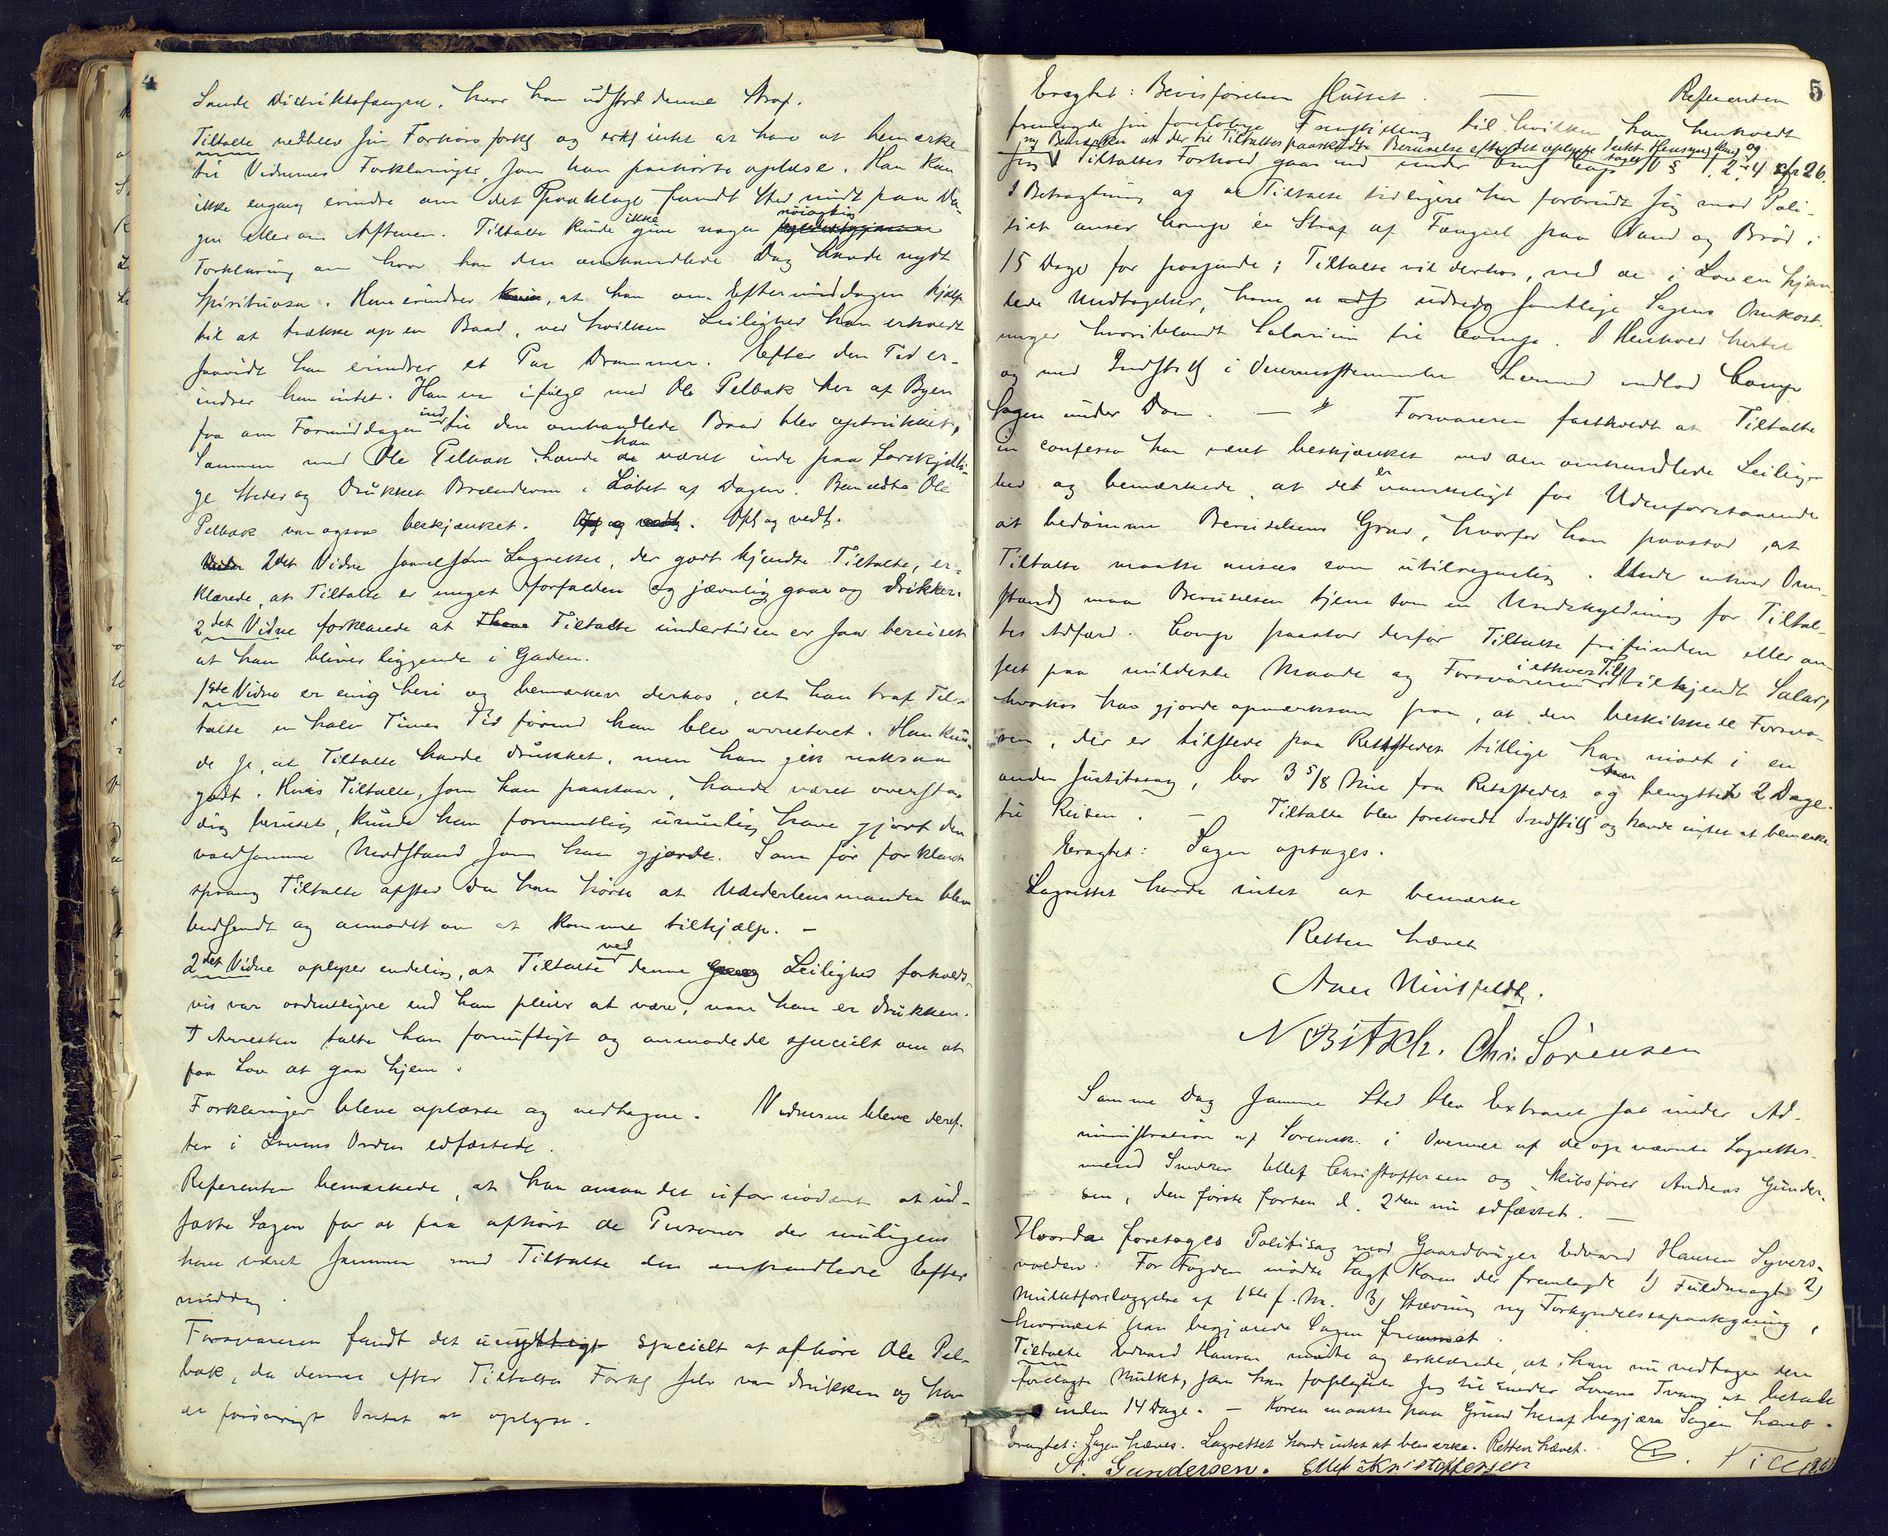 4
Sande Distriktsfængsel, hvor han udstod denne Straf.
Tiltalte vedblev sin Forhørsforkl og erkl intet at have at bemærke
til Vidnernes Forklaringer, som han paahørte oplæse. Han kan
ikke engang erindre om det Paaklagede fandt Sted midt paa Da-
gen eller om Aftenen. Tiltalte kunde ikke give nogen nøiagtig
Forklaring om hvor han den omhandlede Dag havde nydt
Spirituosa. Han erindrer, at han om Eftermiddagen hjalp
til at trække op en Baad, ved hvilken Leilighed han erholdt
saavidt han erindrer et Par Drammer. Efter den Tid er-
indrer han intet. Han var ifølge med Ole Pelbak her af Byen
fra om Formiddagen indtil den omhandlede Baad blev optrukket,
Sammen med Ole Pelbak havde han været inde paa forskjelli-
ge Steder og drukket Brændevin i Løbet af Dagen. Bemeldte Ole
Pelbak var ogsaa beskjænket. Opl og vedt.
2det Vidne saavelsom Lagrettet, der godt kjendte Tiltalte, er-
klærede, at Tiltalte er meget forfalden og jævnlig gaar og drikker.
2det Vidne forklarede at Tiltalte undertiden er saa beruset
at han bliver liggende i Gaden.
1ste Vidne er enig heri og bemærker derhos, at han traf Til-
talte en halv Times Tid førend han blev arresteret. Han kun-
de se, at Tiltalte havde drukket, men han gik noksaa
godt. Hvis Tiltalte, som han paastaar, havde været overstadig
beruset, kunde han formentlig umulig have gjort den
voldsomme Modstand som han gjorde. Som før forklaret
sprang Tiltalte afsted da han hørte at Underlensmanden blev
budsendt og anmodet om at komme tilhjælp. —
2det Vidne oplyser endelig, at Tiltalte ved denne Leilighed forholds-
vis var ordentligere end han pleier at være, naar han er drukken.
I Arresten talte han fornuftigt og anmodede specielt om at
faa Lov at gaa hjem.
Forklaringer bleve oplæste og vedtagne. Vidnerne bleve deref-
ter i Lovens Orden edfæstede.
Referenten bemærkede, at han ansaa det ufornødent at ud-
sætte Sagen for at faa afhørt de Personer der muligens
have været sammen med Tiltalte den omhandlede Efter
middag.
Forsvareren fandt det unyttigt specielt at afhøre Ole Pel-
bak, da denne efter Tiltaltes Forkl selv var drukken og har
de forøvrigt Intet at oplyse.
5
Eragtet: Bevisførelsen sluttet. — Referenten
fremlagde sin foreløbige Fremstilling til hvilken han henholdt
sig. Bemærker at der til Tiltaltes paaskudte Beruselse efter det oplyste Intet Hensyn kan tages og
Tiltaltes Forhold gaar ind under Crml Cap 10 § 1. 2. 4 cfr 26.
I Betragtning af at Tiltalte tidligere har forbrudt sig mod Poli-
tiet anser Comp en Straf af Fængsel paa Vand og Brød i
15 Dage for passende; Tiltalte vil derhos, med de i Loven hjem
lede Undtagelser, have at udrede samtlige Sagens Omkost-
ninger hvoriblandt Salarium til Comp. I Henhold hertil
og med Indstill i Overensstemmelse hermed indlod Comp
Sagen under Dom. — Forsvareren fastholdt at Tiltalte
in confesso har været beskjænket ved den omhandlede Leilig-
hed og bemærkede, at det er vanskeligt for Udenforstaaende
at bedømme Beruselsens Grad, hvorfor han paastod, at
Tiltalte maatte ansees som utilregnelig. Under enhver Om-
stænd maa Beruselsen tjene som en Undskyldning for Tiltal-
tes Adfærd. Comp paastod derfor Tiltalte frifunden eller an
seet paa mildeste Maade og Forsvareren i ethvert Tilf tilkjendt Salar,
hvorhos han gjorde opmærksom paa, at den beskikkede Forsva-
rer, der er tilstede paa Retsstedet tillige har mødt i en
anden Justitssag, bor 3 5/8 Mil fra Retsstedet og har benyttet 2 Dage
til Reisen. — Tiltalte blev foreholdt Indstill og havde intet at bemærke
Eragtet: Sagen optages.
Lagrettet havde intet at bemærke
Retten hævet
N Bitsch. Chr. Sørensen
Samme Dag samme Sted blev Extraret sat under Ad-
ministration af Sorensk. i Overvær af de opnævnte Lagrettes-
mænd Snedker Ellef Christoffersen og Skibsfører Andreas Gunder-
sen, den første forhen d. 2den nu edfæstet. —
Hvorda foretoges Politisag mod Gaardbruger Edvard Hansen Syvers-
volden: For Fogden mødte Sagf Koren der fremlagde 1) Fuldmagt 2)
Mulktforelæggelse af 1ste f. M. 3) Stævning og Forkyndelsespaategning,
hvornæst han begjærede Sagen fremmet.
Tiltalte Edvard Hansen mødte og erklærede, at han nu vedtager den
forelagte Mulkt, som han forpligtede sig til under Lovens Tvang at betale
inden 14 Dage. — Koren maatte paa Grund heraf begjære Sagen hævet.
Eragtet: Sagen hæves. Lagrettet havde intet at bemærke. Retten hævet.
A. Gundersen. Ellef Kristoffersen